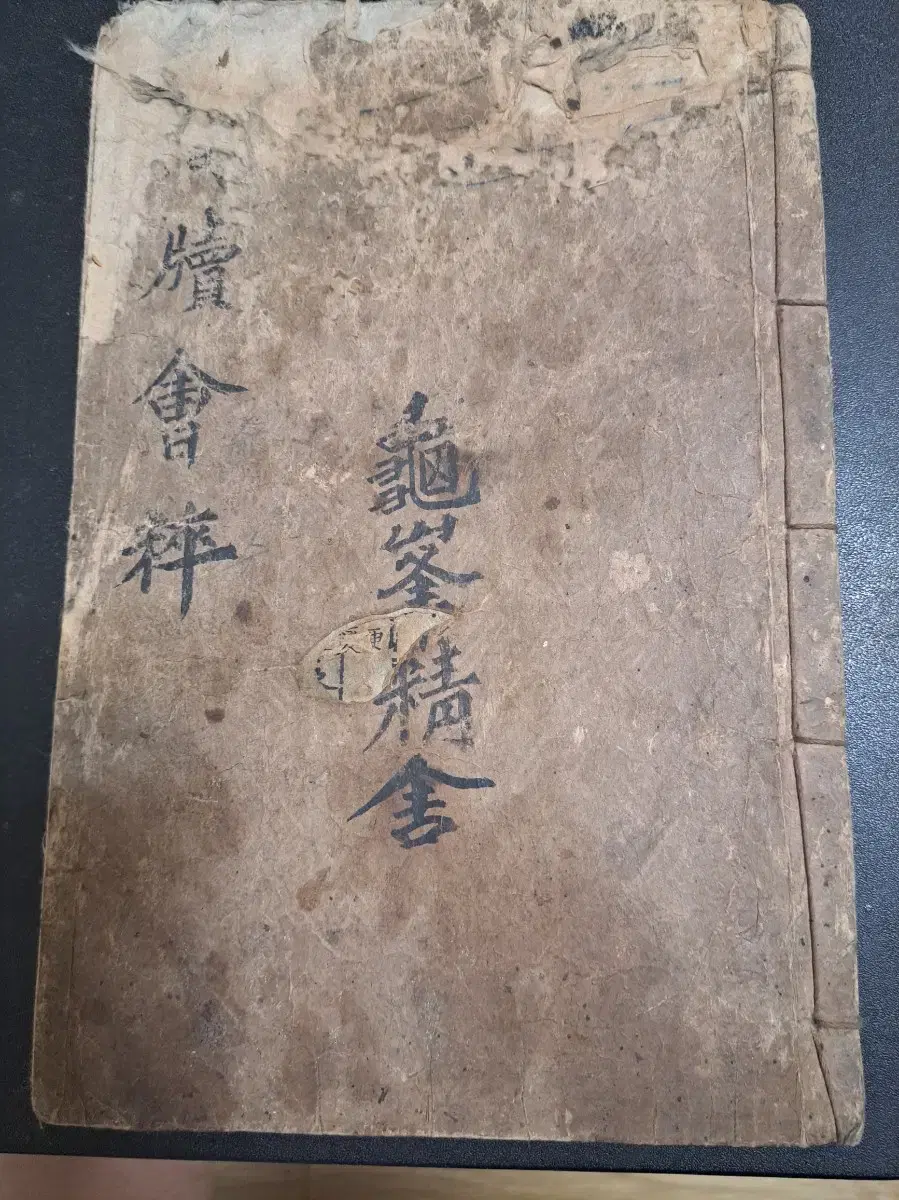 龜峯精舍
牘會粹